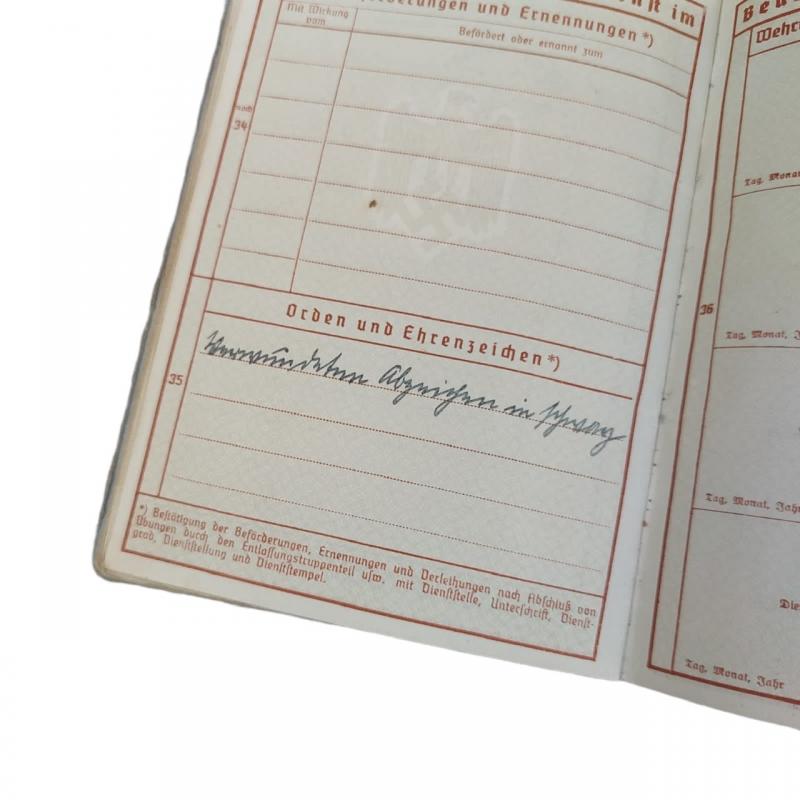 nst im
förderungen und Ernennungen *)
Mit Wirkung
vom
Befördert oder ernannt zum
noch
34
Orden und Ehrenzeichen *)
35
Verwundeten Abzeichen in schwarz
*) Bestätigung der Beförderungen, Ernennungen und Verleihungen nach Abschluß von
Übungen durch den Entlassungstruppenteil usw. mit Dienststelle, Unterschrift, Dienst-
grad, Dienststellung und Dienststempel.
Wehr
Tag, Monat
36
Tag, Monat, J
Tag, Monat, Jahr
Die
Tag, Monat, Jahr